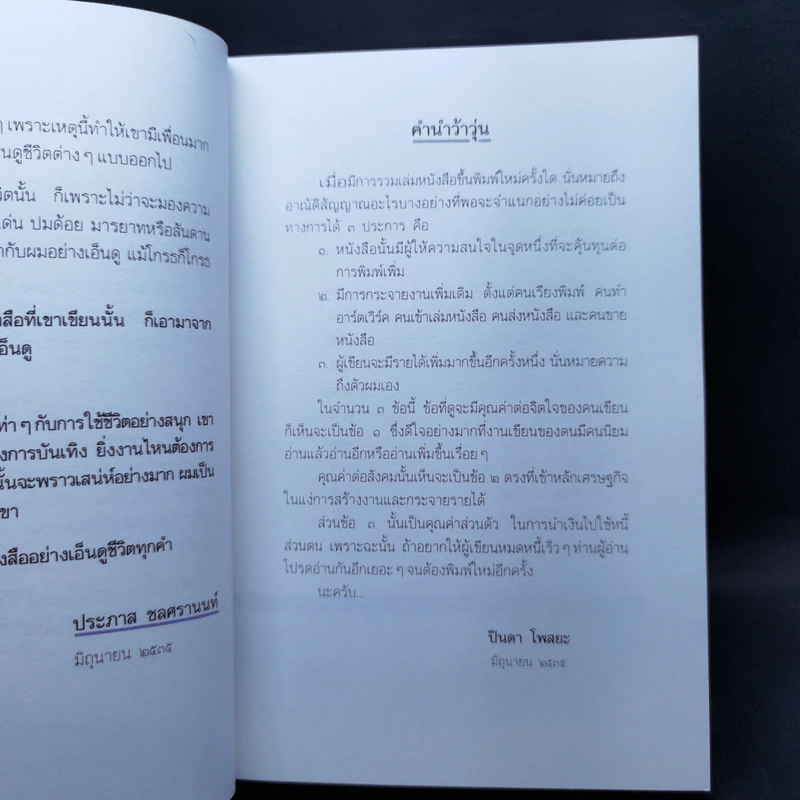 ๆ เพราะเหตุนี้ทำให้เขามีเพื่อนมาก
็นดูชีวิตต่าง ๆ แบบออกไป
ชีวิตนั้น ก็เพราะไม่ว่าจะมองความ
เด่น ปมด้อย มารยาทหรือสันดาน
ากับผมอย่างเอ็นดู แม้โกรธก็โกรธ
งสือที่เขาเขียนนั้น ก็เอามาจาก
เอ็นดู
ท่า ๆ กับการใช้ชีวิตอย่างสนุก เขา
งการบันเทิง ยิ่งงานไหนต้องการ
นั้นจะพราวเสน่ห์อย่างมาก ผมเป็น
ขา
งสืออย่างเอ็นดูชีวิตทุกคำ
ประภาส ชลศรานนท์
มิถุนายน ๒๕๓๕
คำนำว้าวุ่น
เมื่อมีการรวมเล่มหนังสือขึ้นพิมพ์ใหม่ครั้งใด นั่นหมายถึง
อาณัติสัญญาณอะไรบางอย่างที่พอจะจำแนกอย่างไม่ค่อยเป็น
ทางการได้ ๓ ประการ คือ
๑. หนังสือนั้นมีผู้ให้ความสนใจในจุดหนึ่งที่จะคุ้นทุนต่อ
การพิมพ์เพิ่ม
๒. มีการกระจายงานเพิ่มเติม ตั้งแต่คนเรียงพิมพ์ คนทำ
อาร์ตเวิร์ค คนเข้าเล่มหนังสือ คนส่งหนังสือ และคนขาย
หนังสือ
๓. ผู้เขียนจะมีรายได้เพิ่มมากขึ้นอีกครั้งหนึ่ง นั่นหมายความ
ถึงตัวผมเอง
ในจำนวน ๓ ข้อนี้ ข้อที่ดูจะมีคุณค่าต่อจิตใจของคนเขียน
ก็เห็นจะเป็นข้อ ๑ ซึ่งดีใจอย่างมากที่งานเขียนของตนมีคนนิยม
อ่านแล้วอ่านอีกหรืออ่านเพิ่มขึ้นเรื่อย ๆ
คุณค่าต่อสังคมนั้นเห็นจะเป็นข้อ ๒ ตรงที่เข้าหลักเศรษฐกิจ
ในแง่การสร้างงานและกระจายรายได้
ส่วนข้อ ๓ นั้นเป็นคุณค่าส่วนตัว ในการนำเงินไปใช้หนี้
ส่วนตน เพราะฉะนั้น ถ้าอยากให้ผู้เขียนหมดหนี้เร็ว ๆ ท่านผู้อ่าน
โปรดอ่านกันอีกเยอะ ๆ จนต้องพิมพ์ใหม่อีกครั้ง
นะครับ...
ปินดา โพสยะ
มิถุนายน ๒๕๓๕